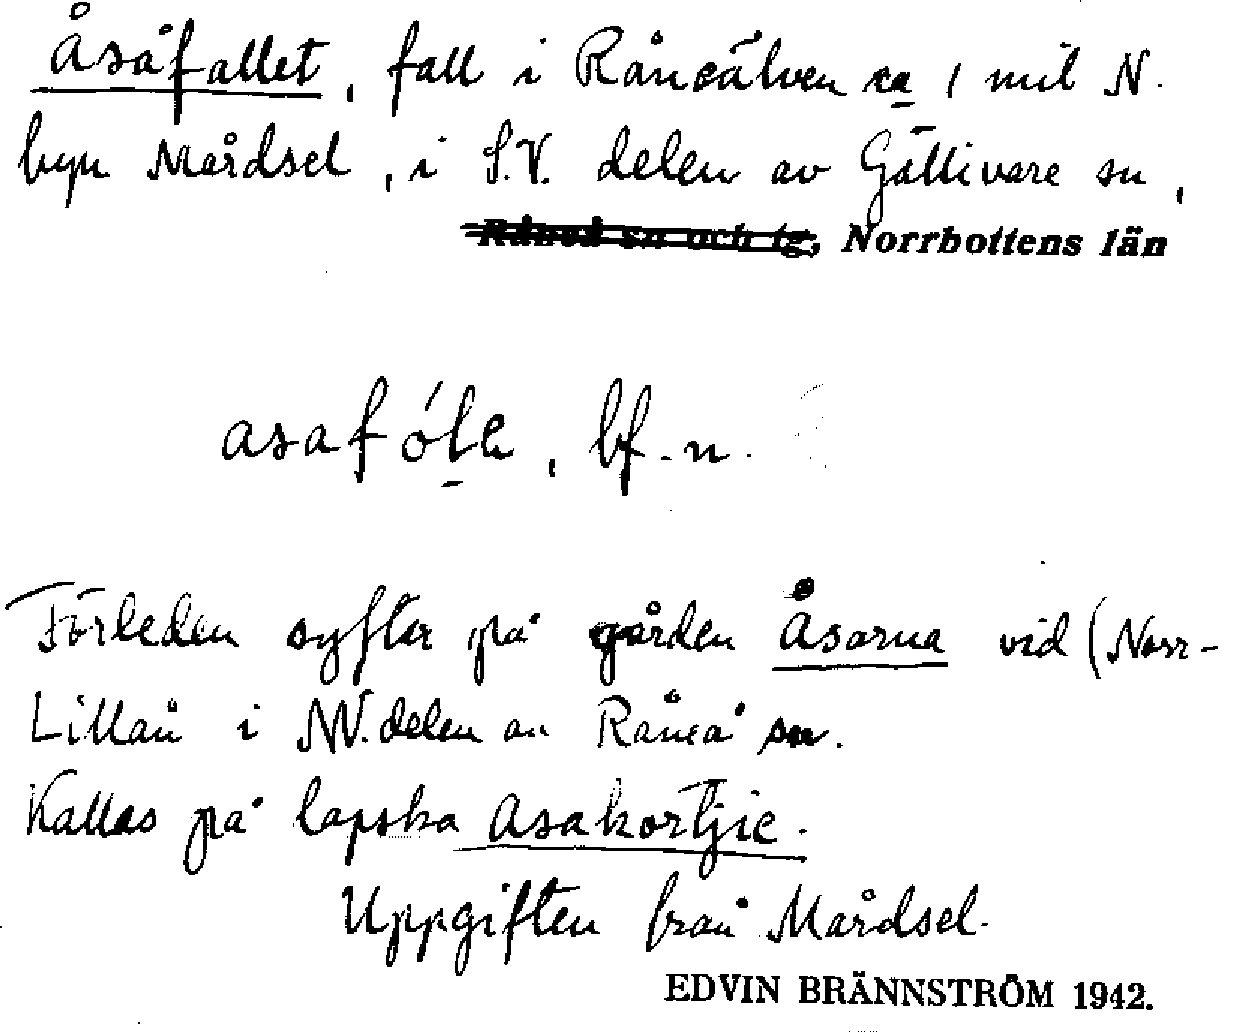 Åsåfallet, fall i Råneälven ca 1 mil N.
byn Mårdsel, i S.V. delen av Gällivare sn,
Råneå sn och tg, Norrbottens län
asafóll̥, bf. n.
Förleden syftar på gården Åsarna vid (Norr-
Lillån i NV. delen av Råneå sn.
Kallas på lapska Asakortjie.
Uppgiften från Mårdsel.
EDVIN BRÄNNSTRÖM 1942.